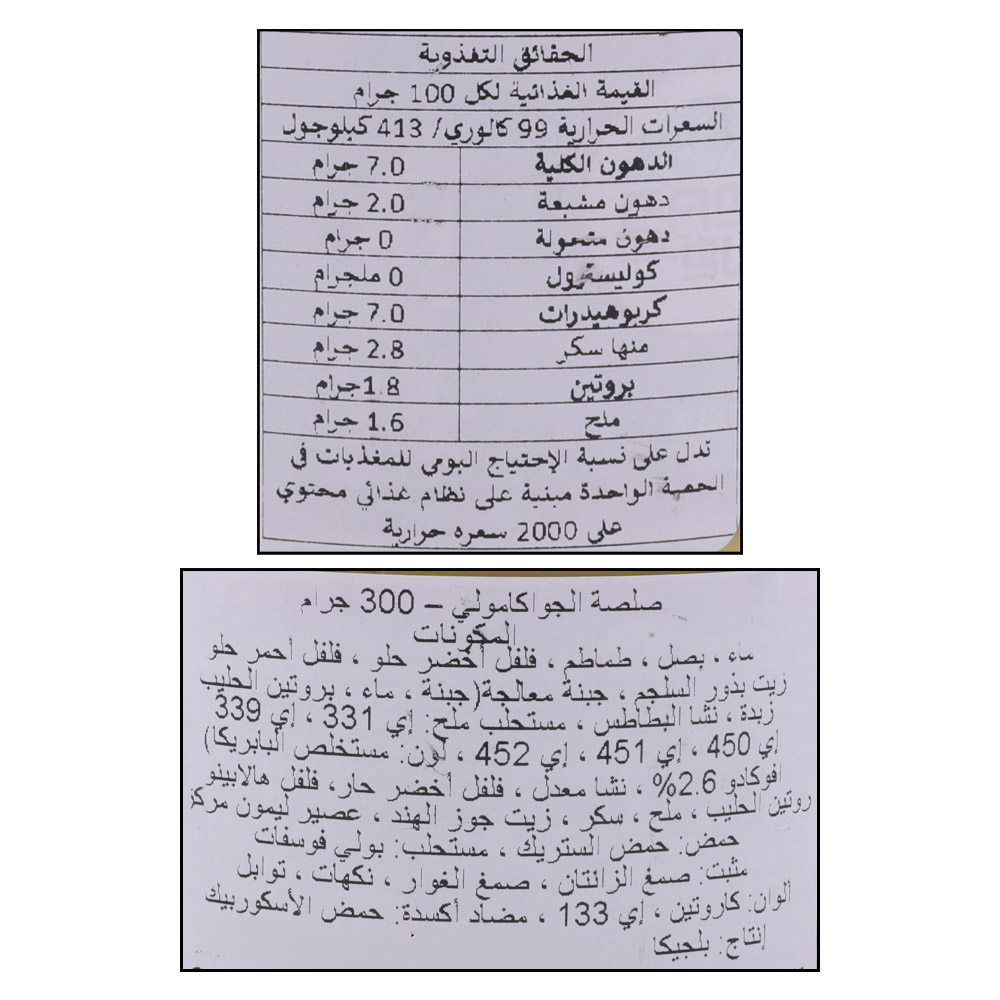 الحقائق التغذوية
القيمة الغذائية لكل 100 جرام
السعرات الحرارية 99 كالوري/ 413 كيلوجول
الدهون الكلية 7.0 جرام
دهون مشبعة 2.0 جرام
دهون متحولة 0 جرام
كوليسترول 0 ملجرام
كربوهيدرات 7.0 جرام
منها سكر 2.8 جرام
بروتين 1.8جرام
ملح 1.6 جرام
تدل على نسبة الإحتياج اليومي للمغذيات في
الحصة الواحدة مبنية على نظام غذائي محتوي
على 2000 سعره حرارية
صلصة الجواكامولي – 300 جرام
المكونات
ماء ، بصل ، طماطم ، فلفل أخضر حلو ، فلفل أحمر حلو
زيت بذور السلجم ، جبنة معالجة(جبنة ، ماء ، بروتين الحليب
زبدة ، نشا البطاطس ، مستحلب ملح: إي 331 ، إي 339
إي 450 ، إي 451 ، إي 452 ، لون: مستخلص البابريكا)
افوكادو 2.6% ، نشا معدل ، فلفل أخضر حار، فلفل هالابينو
روتين الحليب ، ملح ، سكر ، زيت جوز الهند ، عصير ليمون مركز
حمض: حمض الستريك ، مستحلب: بولي فوسفات
مثبت: صمغ الزانتان ، صمغ الغوار ، نكهات ، توابل
ألوان: كاروتين ، إي 133 ، مضاد أكسدة: حمض الأسكوربيك
إنتاج: بلجيكا